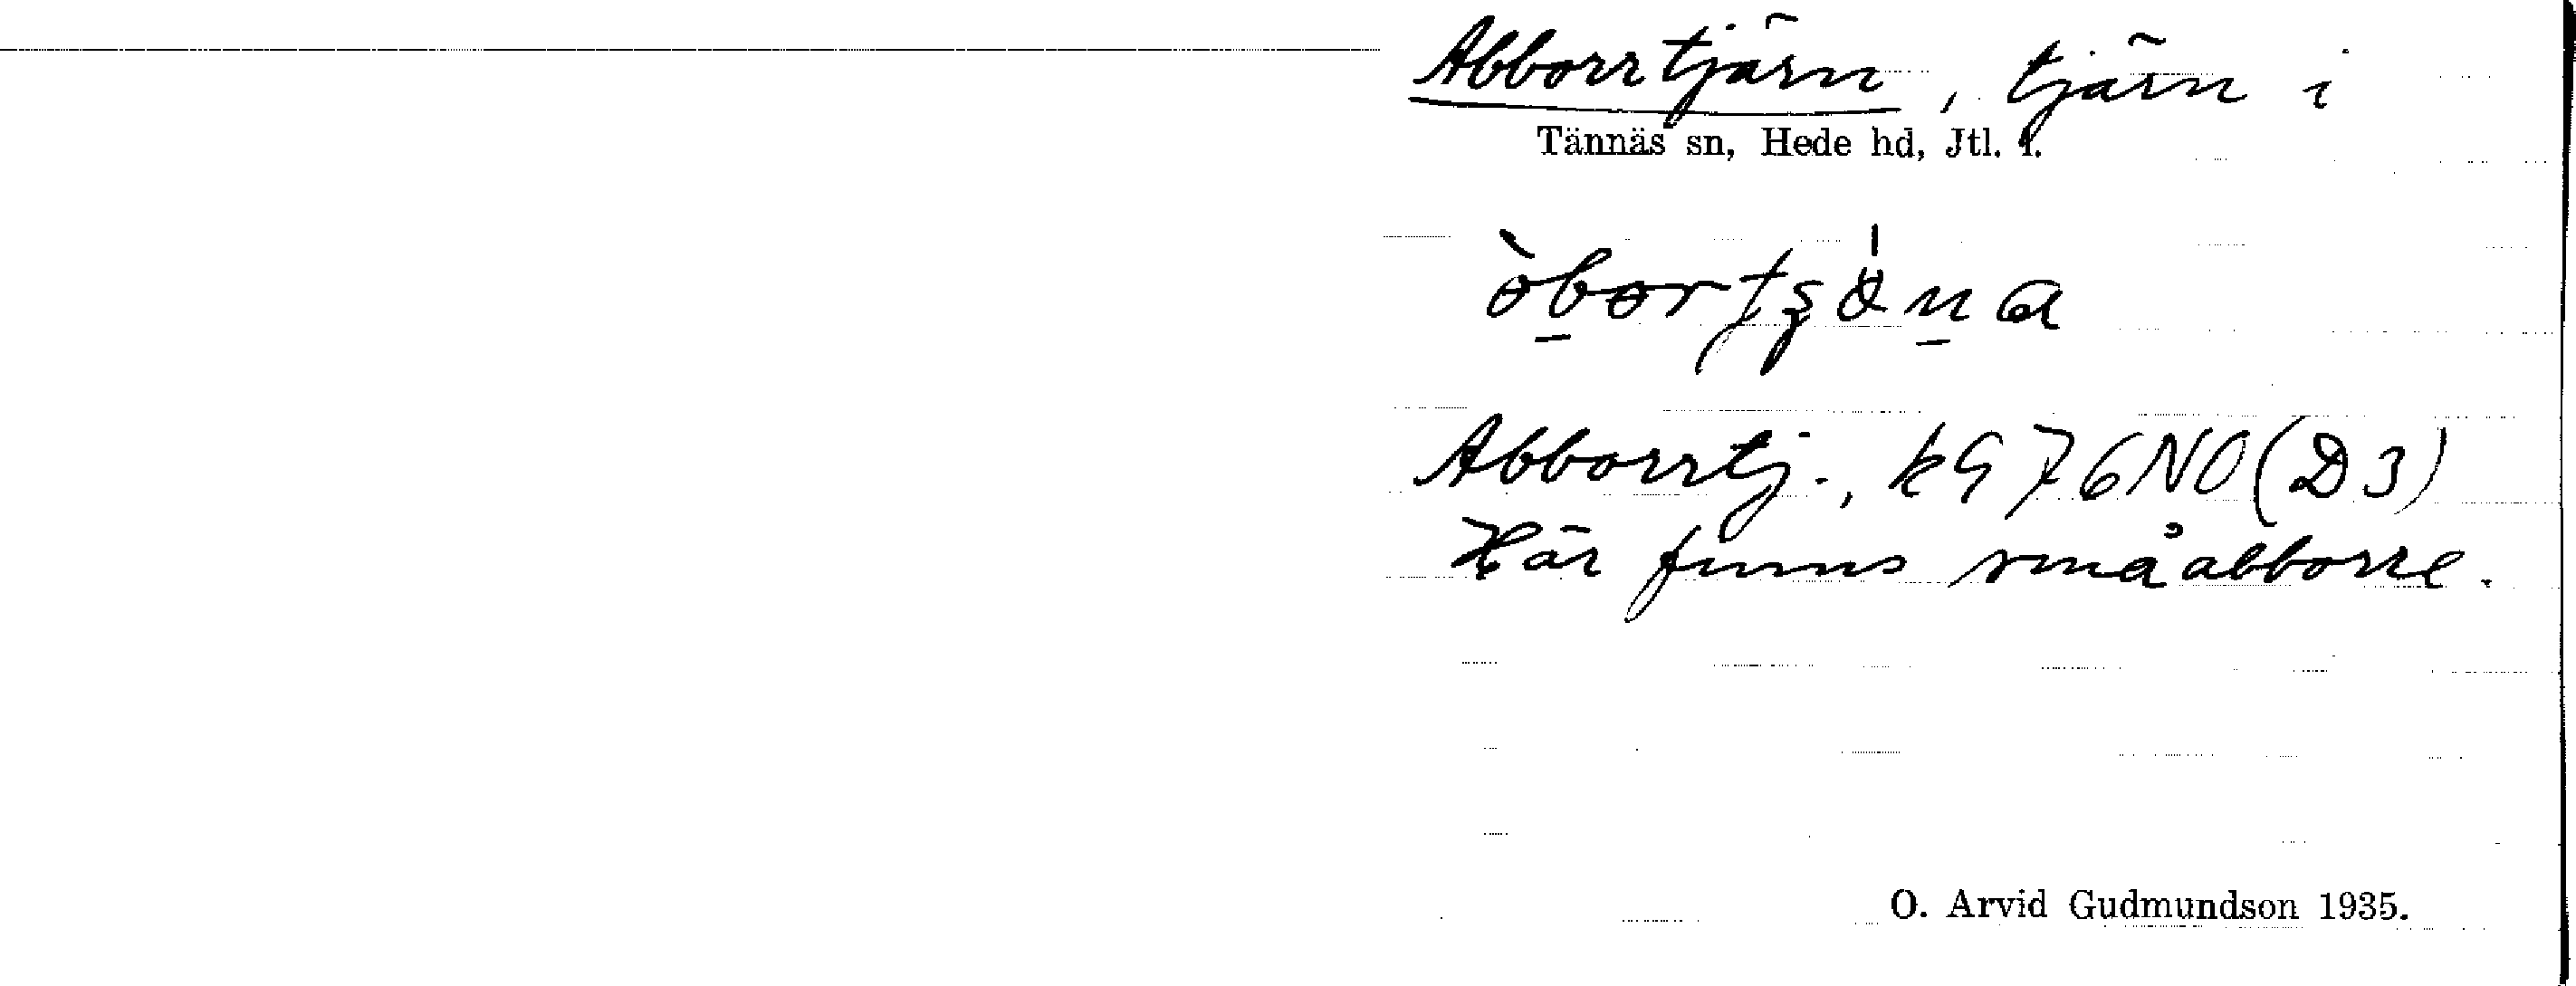 Abborrtjärn, tjärn i
Tännäs sn, Hede hd, Jtl. l.
Abborrtj., kG 76NO(D3)
Här finns småabborre.
O. Arvid Gudmundson 1935.